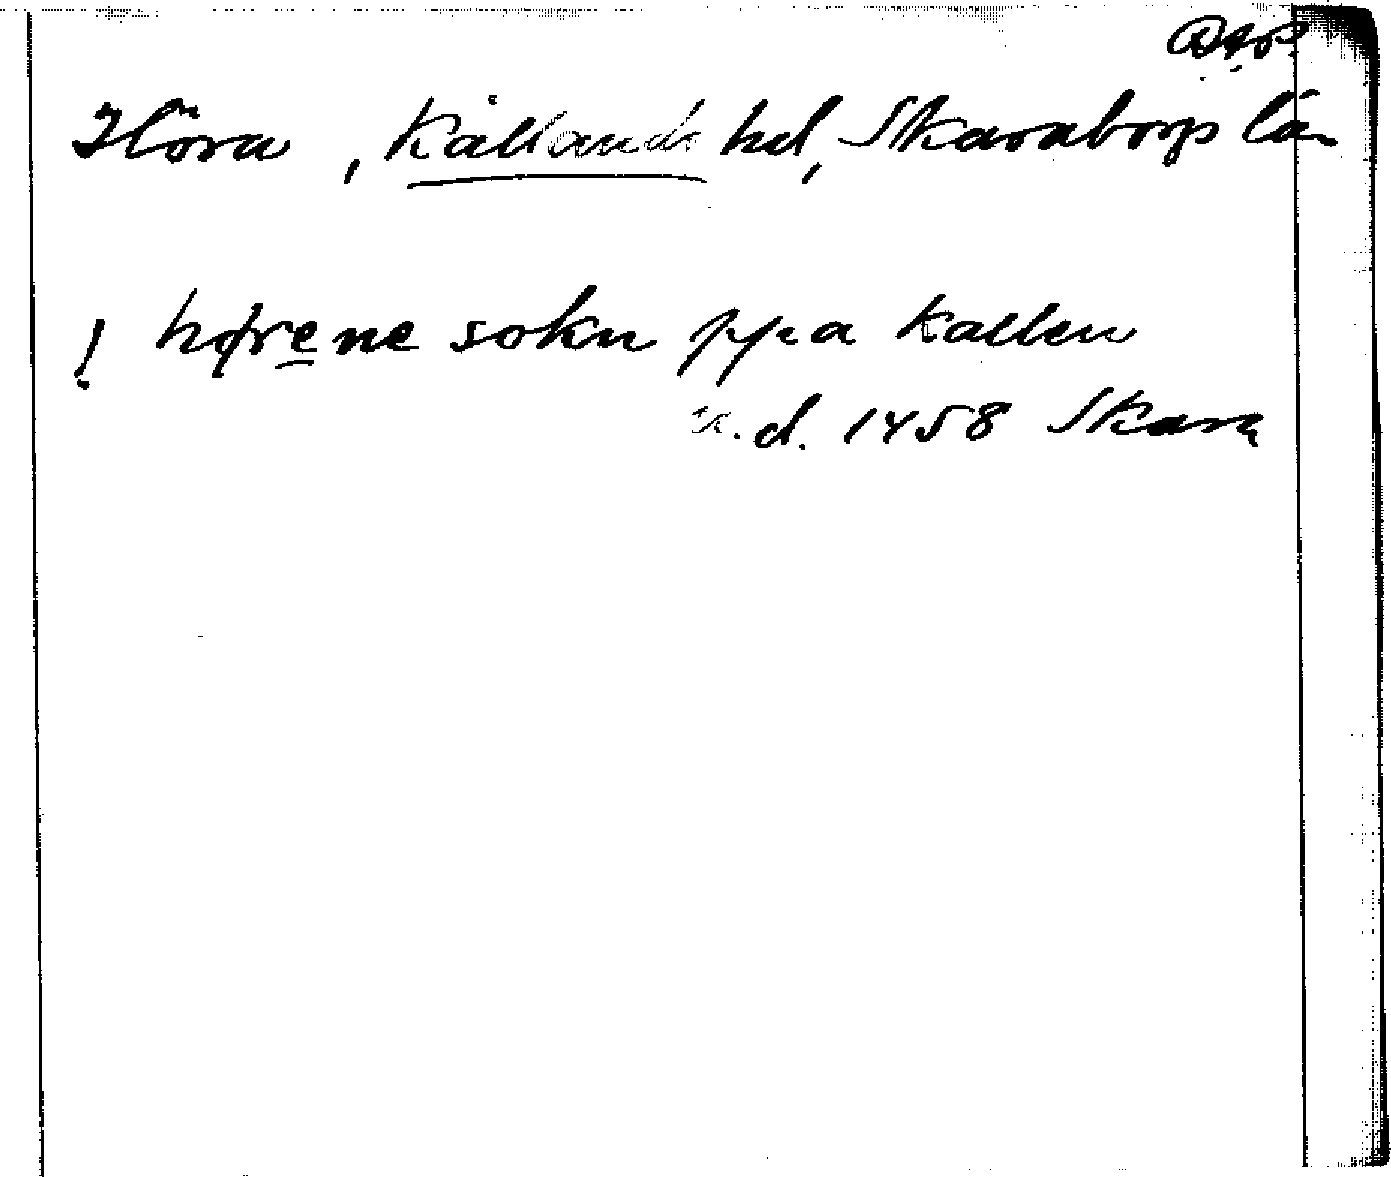 Höra, Kållands hd, Skaraborgs län
! hørene sokn ppa Kallen
u. d. 1458 Skara